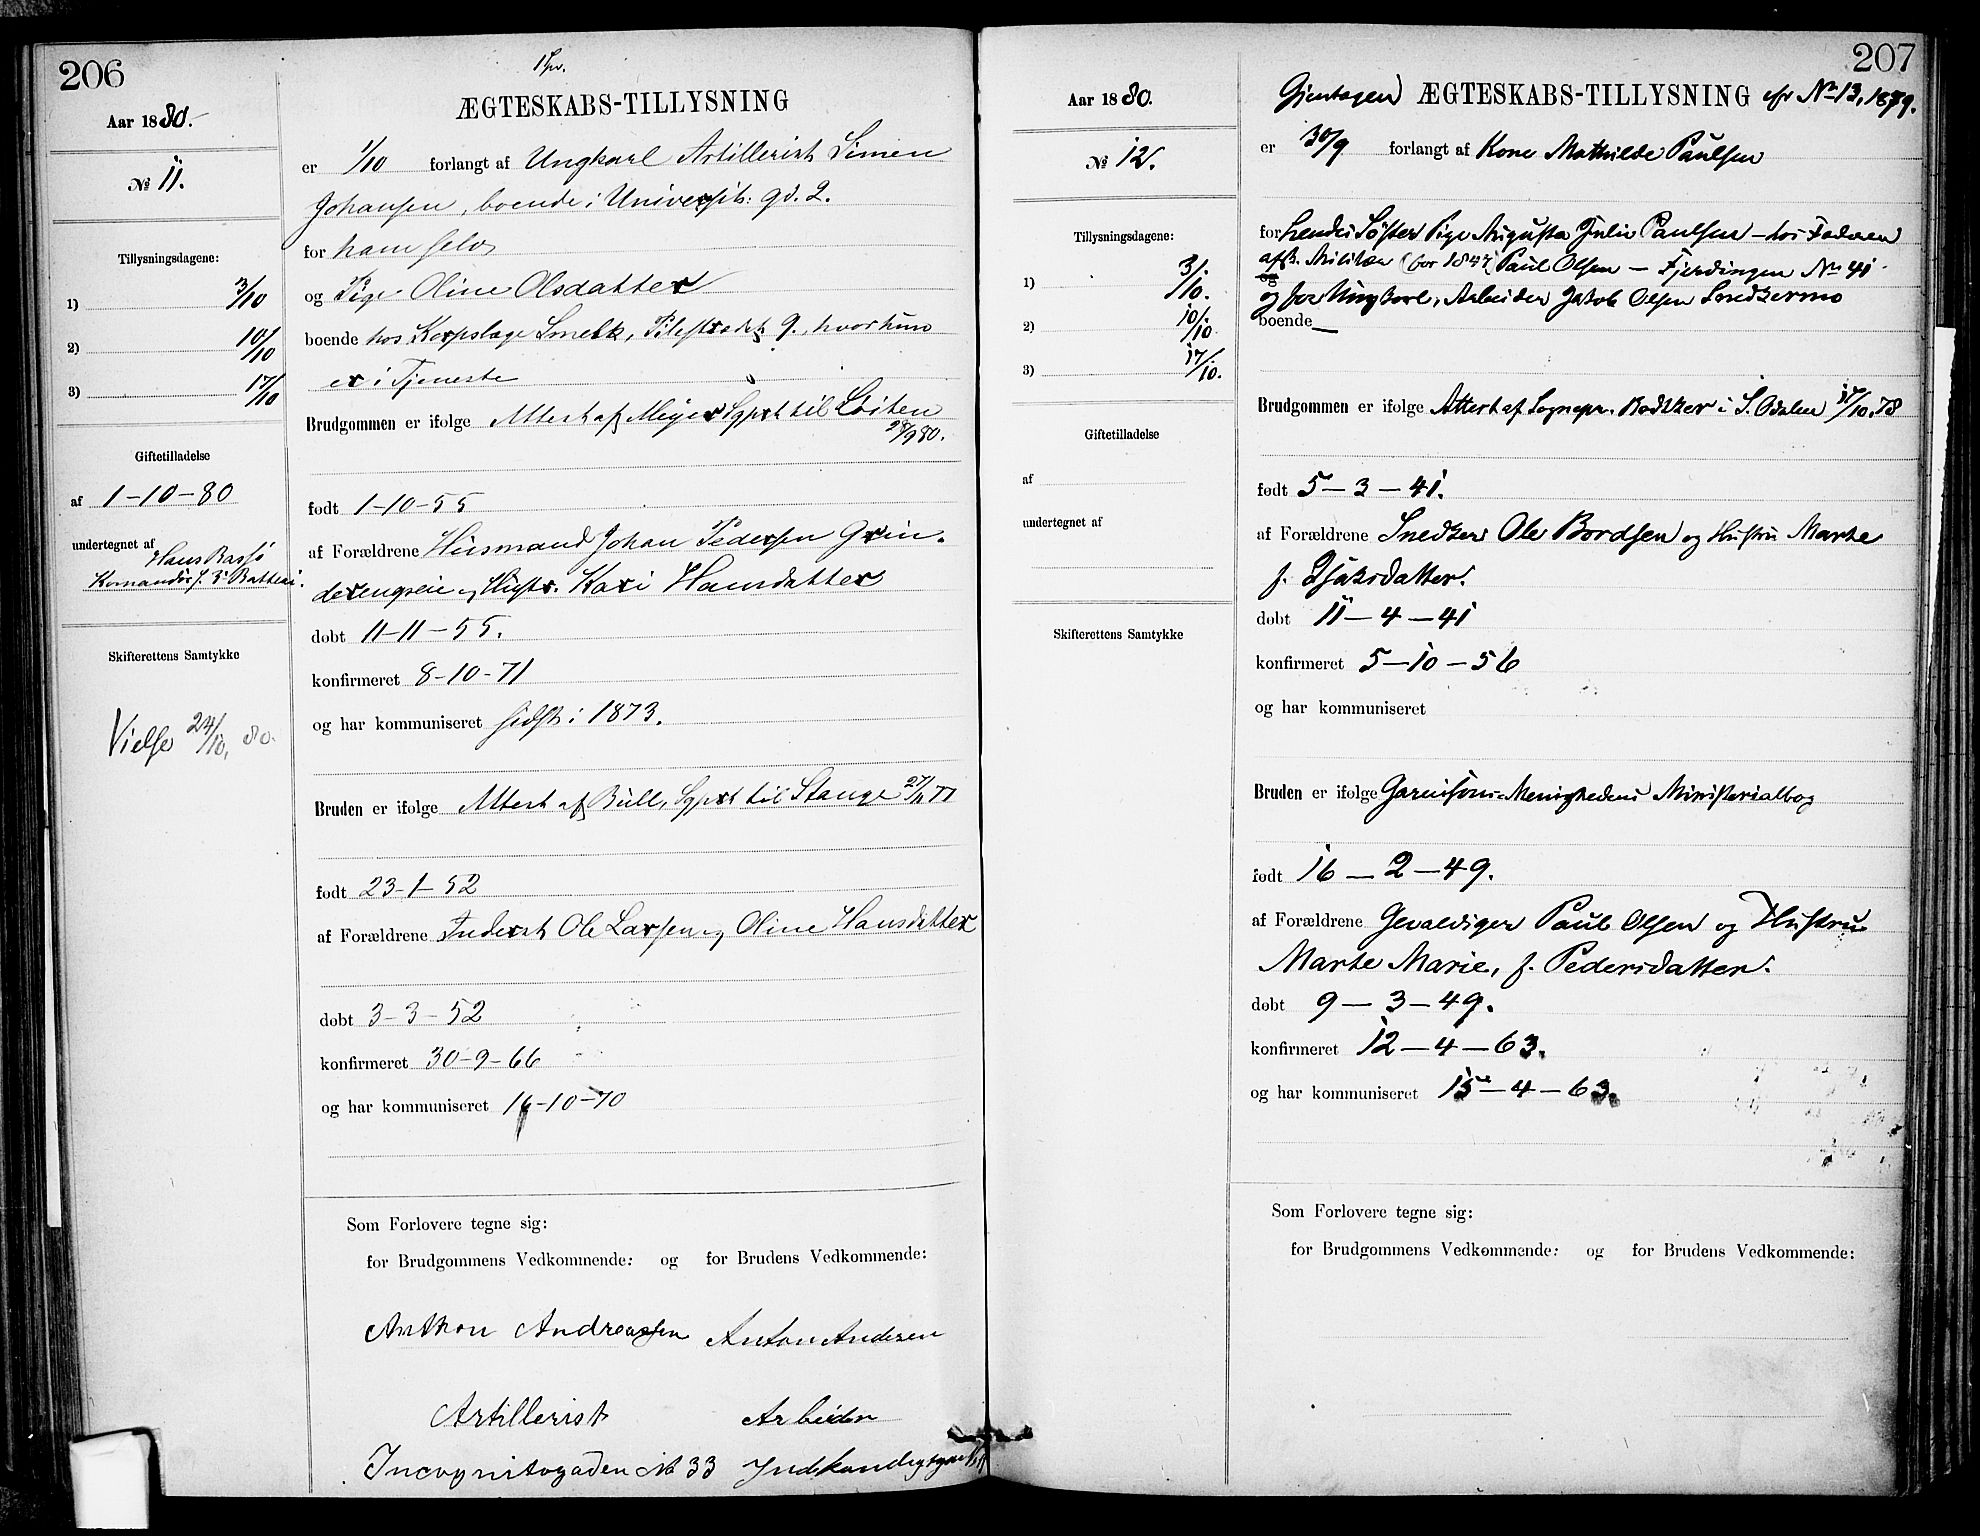 206
Aar 1880.
№ 11.
Tillysningsdagene:
1) 3/10
2) 10/10
3) 17/10
Giftetilladelse
af 1-10-80
undertegnet af
Hans Rasjø
Komandör f. 3' Batteri.
Skifterettens Samtykke
Vielse 24/10, 80.
ÆGTESKABS-TILLYSNING
er 1/10 forlangt af Ungkarl Artillerist Simen
Johansen, boende i Universit: gd. 2.
for ham selv
og Pige Oline Olsdatter
boende hos Korpslæge Smelk, Pilestrædet 9, hvor hun
er i Tjeneste
Brudgommen er ifolge Attest af Meyer Sgprst til Løiten
28/9 80.
født 1-10-55
af Forældrene Husmand Johan Pedersen Grin-
derengseie og Hustr. Kari Hansdatter
døbt 11-11-55.
konfirmeret 8-10-71
og har kommuniseret sidst i 1873.
Bruden er ifolge Attest af Bull, Sgprst til Stange 27/11 77
født 23-1-52
af Forældrene Inderst Ole Larsen og Oline Hansdatter
døbt 3-3-52
konfirmeret 30-9-66
og har kommuniseret 16-10-70
Som Forlovere tegne sig:
for Brudgommens Vedkommende: og for Brudens Vedkommende:
Anthon Andreassen Anton Andersen
Artillerist Arbeider
Incognitogaden № 33
207
Aar 1880.
№ 12.
Tillysningsdagene:
1) 3/10.
2) 10/10
3) 17/10.
Giftetilladelse
af
undertegnet af
Skifterettens Samtykke
Gjentagen ÆGTESKABS-TILLYSNING cfr No 13, 1879.
er 30/9 forlangt af Kone Mathilde Paulsen
for hendes Søster Pige Augusta Julie Paulsen – hos Faderen
afsk. Militær (før 1847) Paul Olsen – Fjerdingen No 41
og
og for Ungkarl, Arbeider Jakob Olsen Snedkermo
boende —
Brudgommen er ifølge Attest af Sognepr. Bødtker i S. Odalen 17/10.78
født 5-3-41.
af Forældrene Snedker Ole Bordsen og Hustru Marte
f. Isaksdatter.
døbt 11-4-41
konfirmeret 5-10-56
og har kommuniseret
Bruden er ifølge Garnisons-Menighedens Ministerialbog
født 16-2-49.
af Forældrene Gevaldiger Paul Olsen og Hustru
Marte Marie, f. Pedersdatter.
døbt 9-3-49.
konfirmeret 12-4-63.
og har kommuniseret 15-4-63.
Som Forlovere tegne sig:
for Brudgommens Vedkommende: og for Brudens Vedkommende: